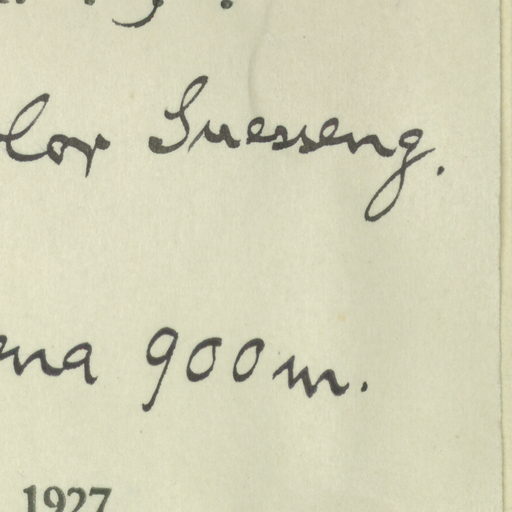 lor Suesseng.
ena 900 m.
1927